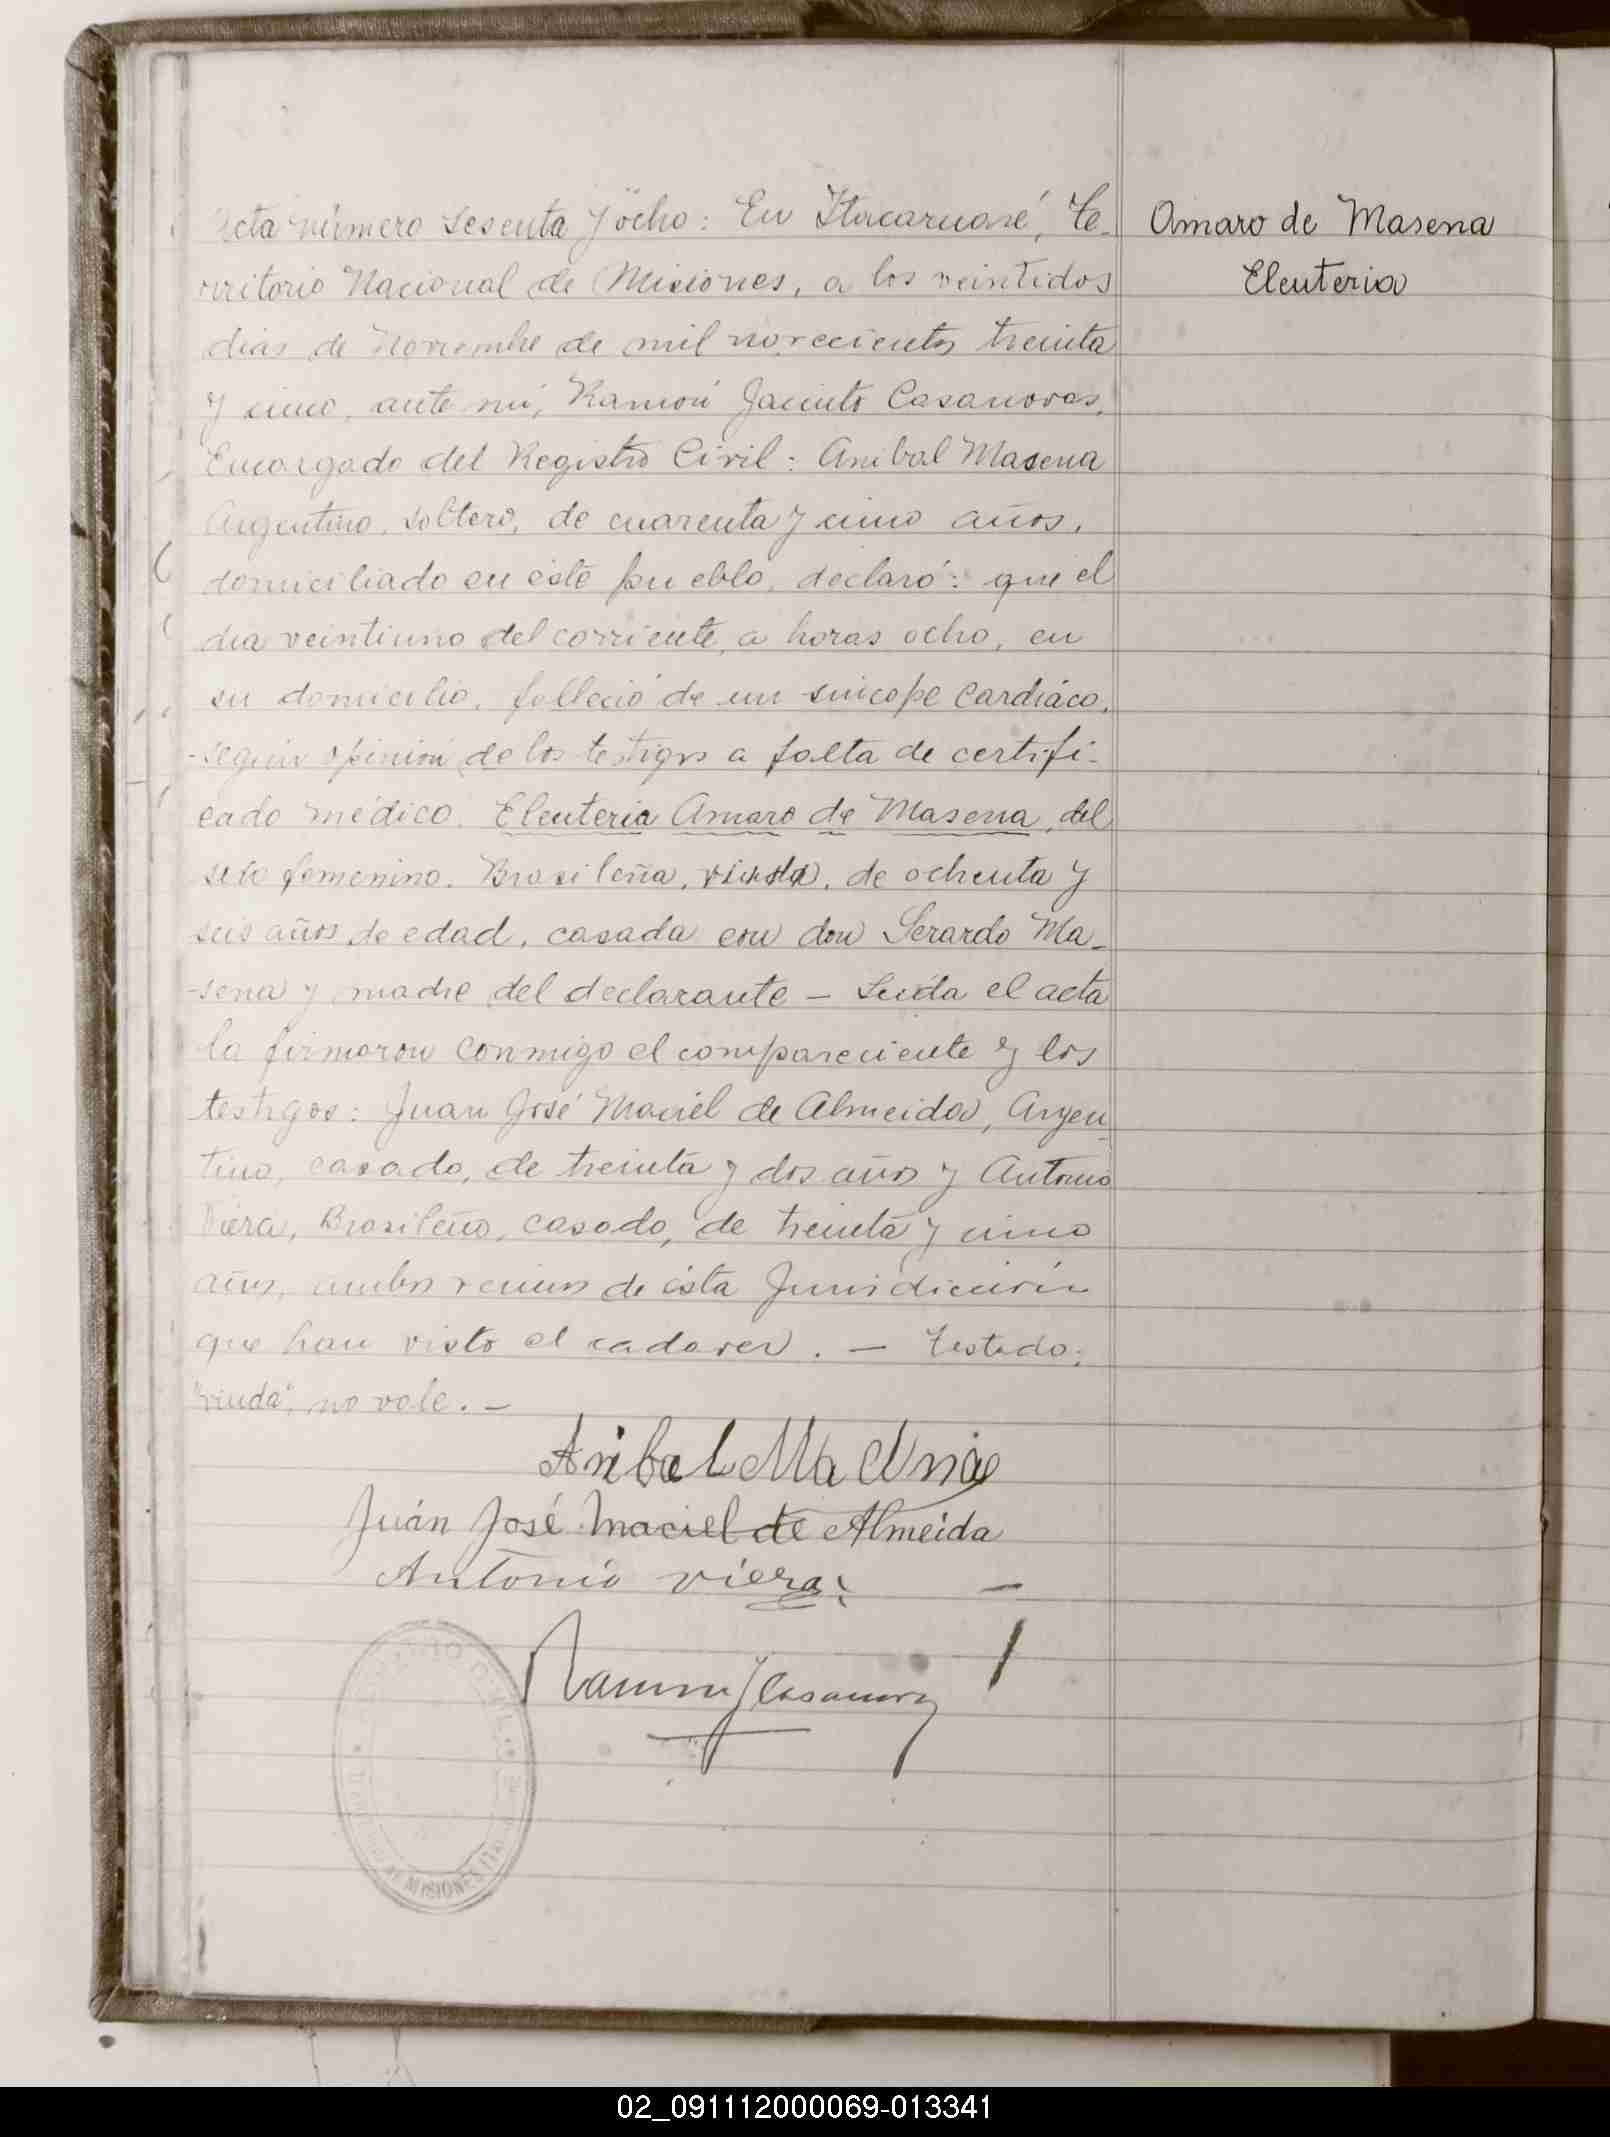 Acta número sesenta y ocho: En Itacaruaré, Te-
rritorio Nacional de Misiones, a los veintidos
dias de Noviembre de mil novecientos treinta
y cinco, ante mí, Ramón Jacinto Casanovas,
Encargado del Registro Civil: Anibal Masena
Argentino, soltero, de cuarenta y cinco años,
domiciliado en éste pueblo, declaró: que el
dia veintiuno del corriente, a horas ocho, en
su domicilio, falleció de un sincope cardiáco,
según opinión de los testigos a falta de certifi-
cado médico. Eleuteria Amaro de Masena, del
sexo femenino. Brasileña, viuda, de ochenta y
seis años de edad, casada con don Gerardo Ma-
sena y madre del declarante - Leída el acta
la firmaron conmigo el compareciente y los
testigos: Juan José Maciel de Almeida, Argen-
tino, casado, de treinta y dos años y Antonio
Viera, Brasileño, casado, de treinta y cinco
años, ambos vecinos de ésta Jurisdicción
que han visto el cadaver. - Testado:
"viuda", no vale. -
Anibal Masena
Juán José Maciel de Almeida
Antonio Viera
Ramón J Casanovas
MISIONES
Amaro de Masena
Eleuteria
02_091112000069-013341